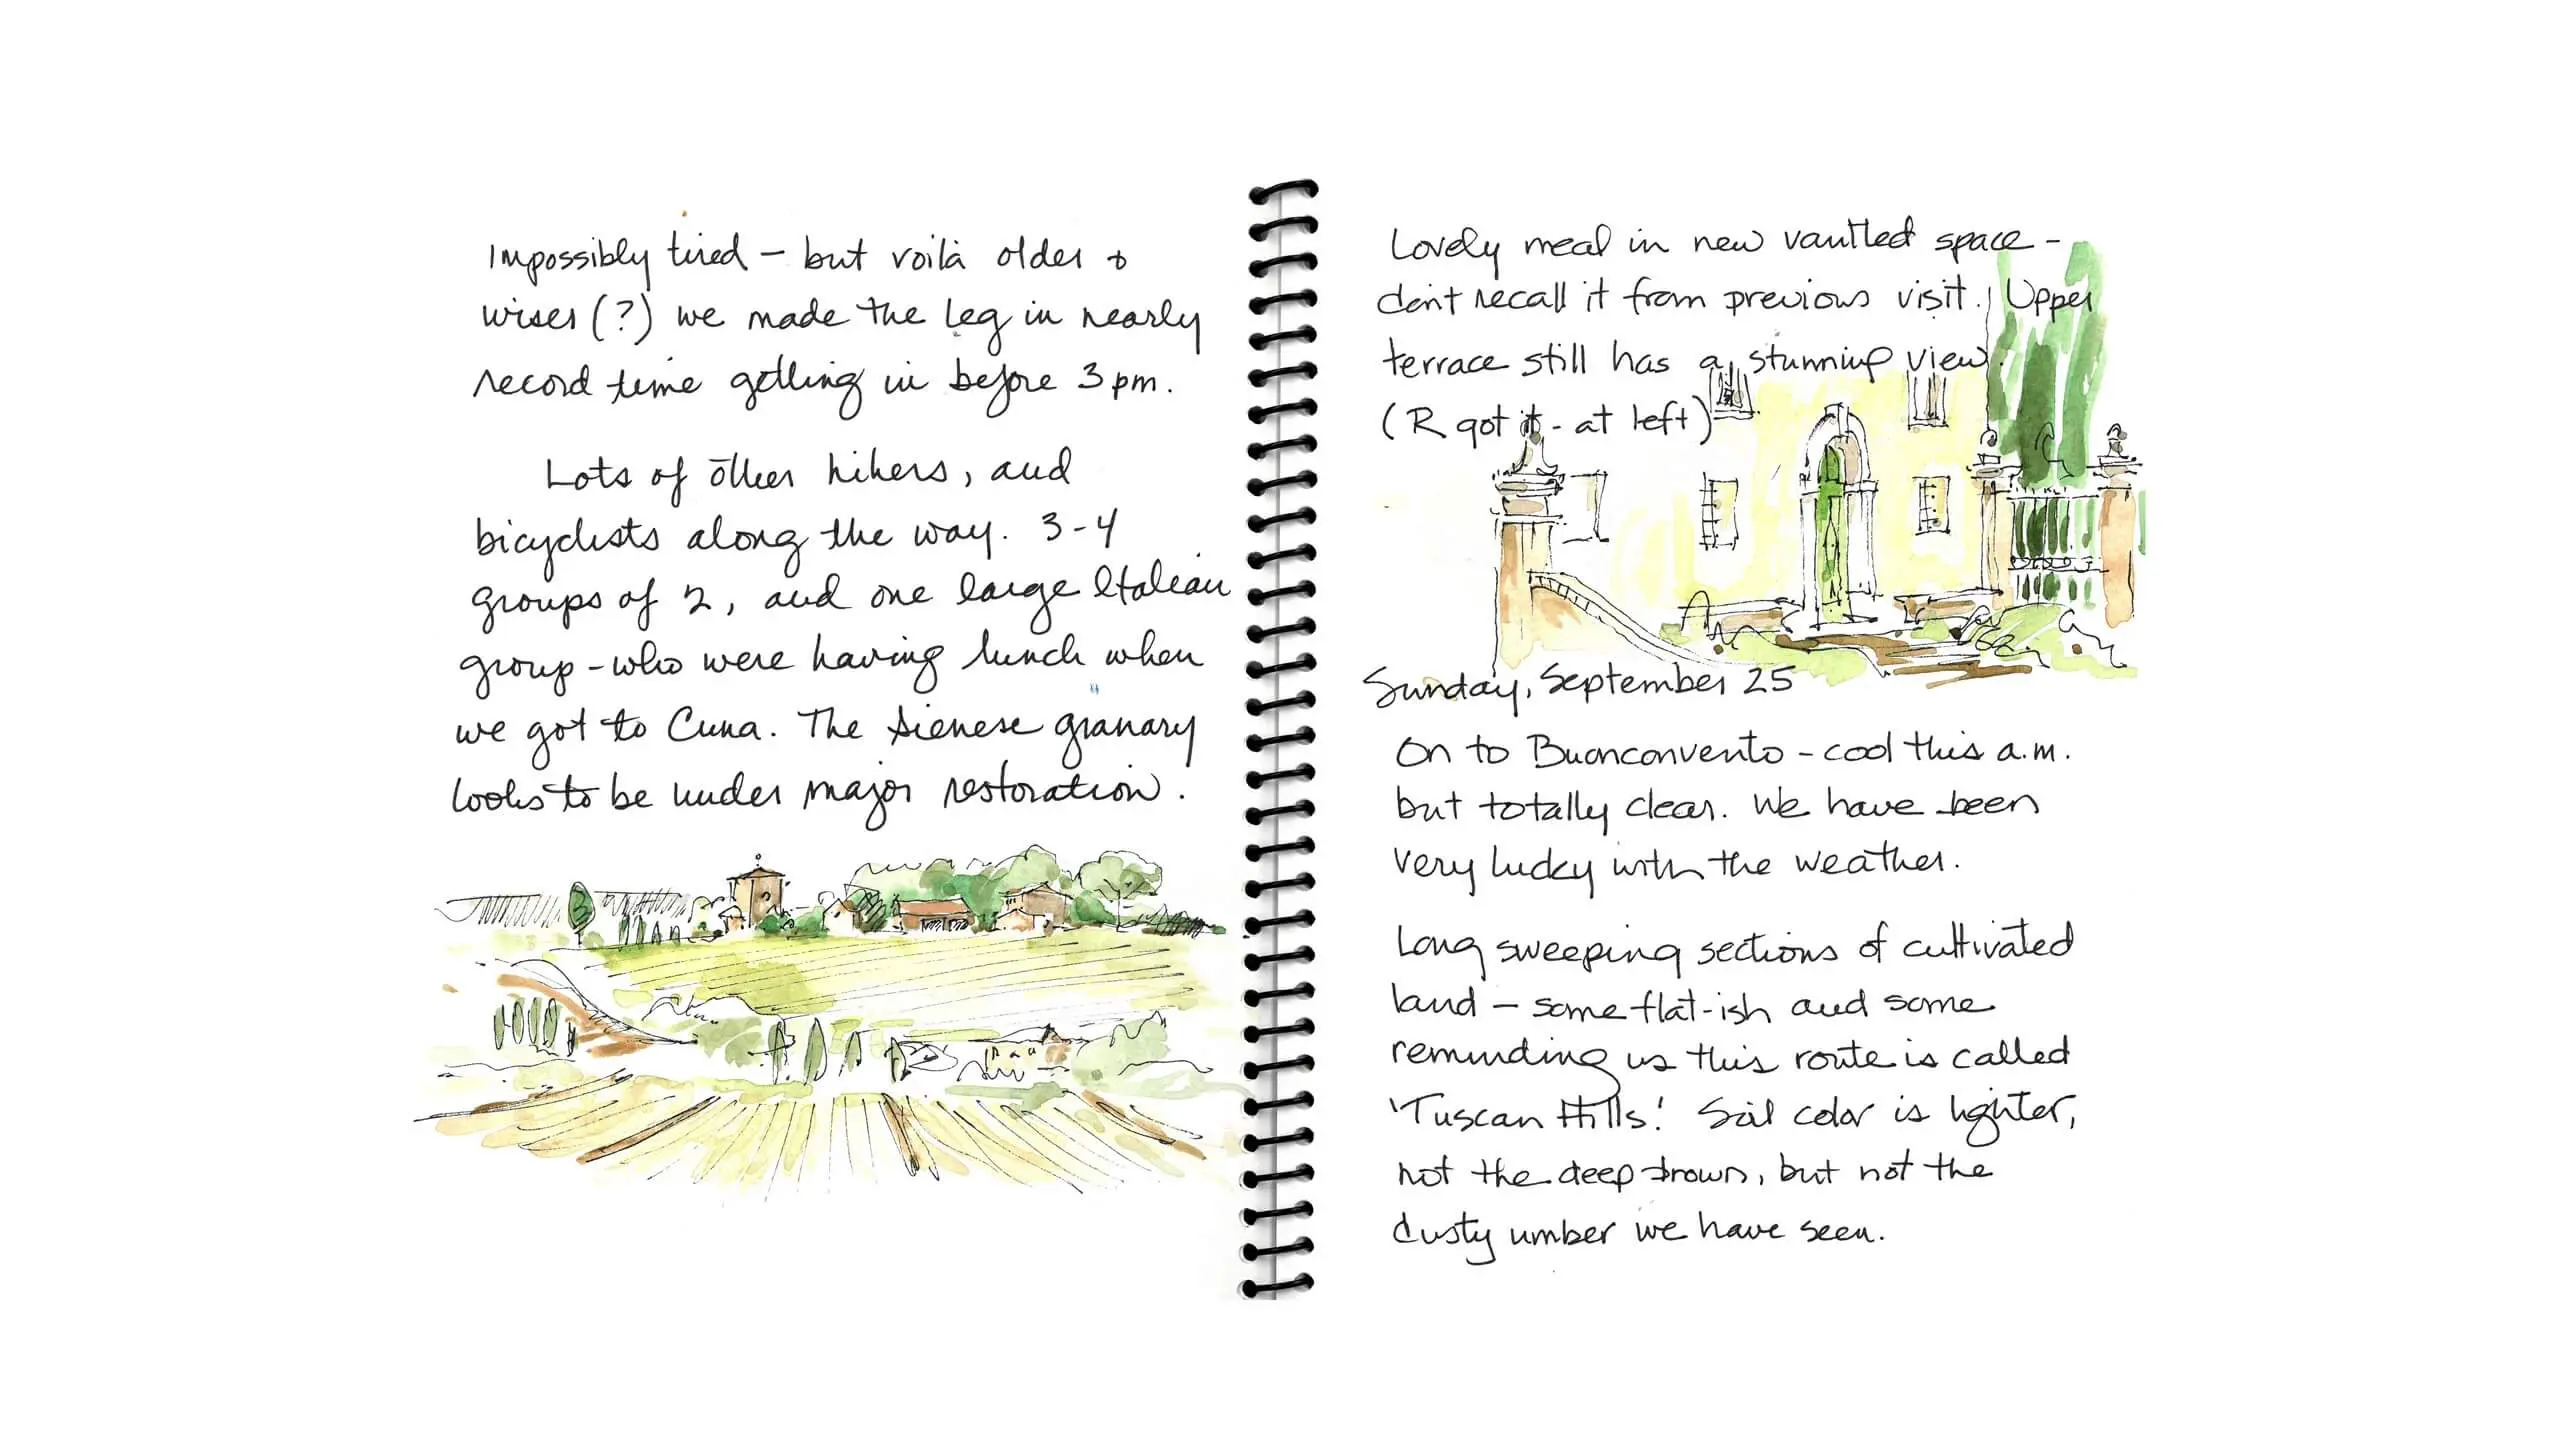 Impossibly tired – but voilà older +
wiser (?) we made the leg in nearly
record time getting in before 3 pm.
Lots of other hikers, and
bicyclists along the way. 3-4
groups of 2, and one large Italian
group – who were having lunch when
we got to Cuna. The Sienese granary
looks to be under major restoration.
Lovely meal in new vaulted space –
don't recall it from previous visit. Upper
terrace still has a stunning view.
(R got it - at left)
Sunday, September 25
On to Buonconvento – cool this a.m.
but totally clear. We have been
very lucky with the weather.
Long sweeping sections of cultivated
land – some flat-ish and some
reminding us this route is called
'Tuscan Hills'. Soil color is lighter,
not the deep brown, but not the
dusty umber we have seen.